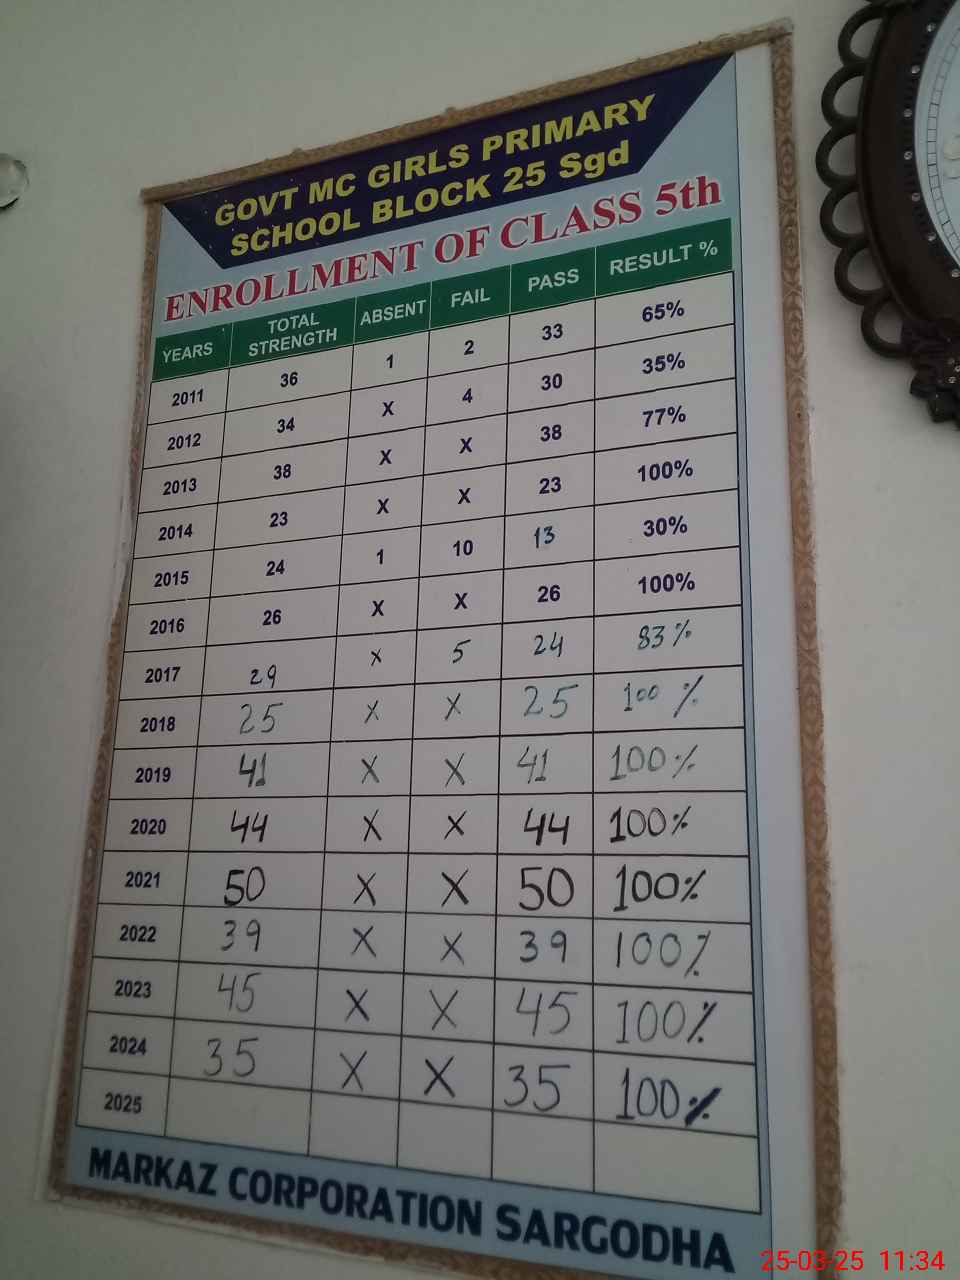 GOVT MC GIRLS PRIMARY
SCHOOL BLOCK 25 Sgd
ENROLLMENT OF CLASS 5th
YEARS TOTAL STRENGTH ABSENT FAIL PASS RESULT %
2011 36 1 2 33 65%
2012 34 X 4 30 35%
2013 38 X X 38 77%
2014 23 X X 23 100%
2015 24 1 10 13 30%
2016 26 X X 26 100%
2017 29 X 5 24 83%
2018 25 X X 25 100%
2019 41 X X 41 100%
2020 44 X X 44 100%
2021 50 X X 50 100%
2022 39 X X 39 100%
2023 45 X X 45 100%
2024 35 X X 35 100%
2025
MARKAZ CORPORATION SARGODHA
25-03-25 11:34